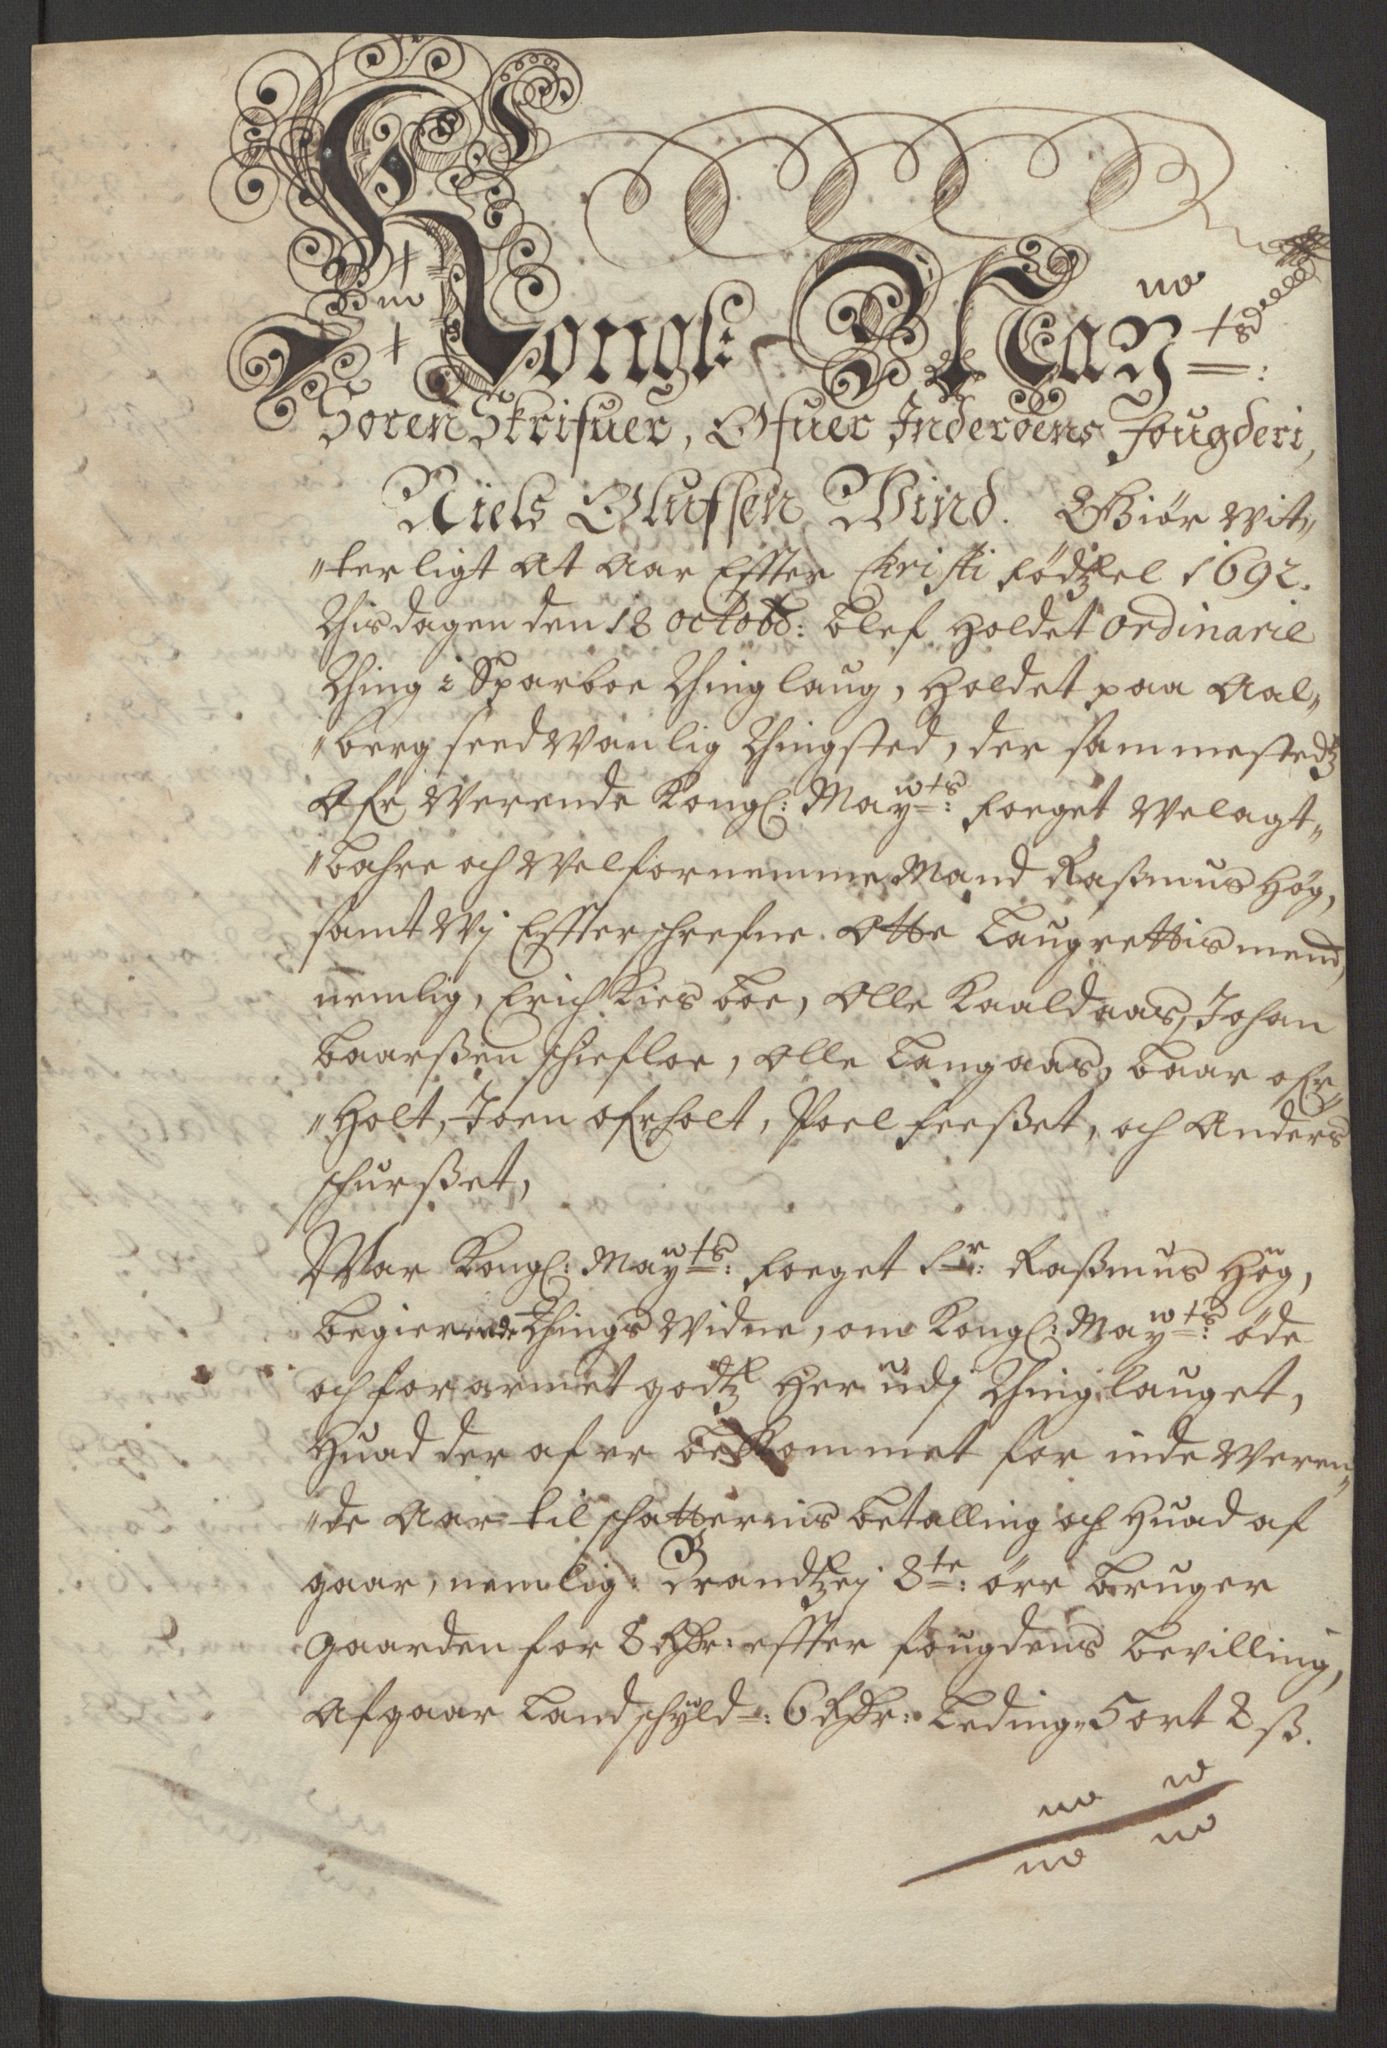 Kongl: Maÿ:ts:
Soren Skrifuer, Ofuer Inderøens Fougderi,
Niels Olufsen Wind. Giør Wit„
„terligt at aar Effter Christi fødtzel 1692.
Thisdagen den 18 octobr: blef holdet ordinarie
Thing i Sparboe Thinglaug, holdet paa Aal„
„berg sædwanlig Thingsted, der sammestedtz
Ofr werende Kongl: Maÿ:ts: foeget Welagt„
„bahre och Welfornemme Mand Raßmus Høg,
samt Wj Effterschrefne Otte Laugrettismend,
nemlig, Erich Kirsboe, Olle Kaaldaas, Johan
Baarßen Schiefloe, Olle Langaas, Baar ofr„
„holt, Joen ofrholt, Poel feeßet, och Anders
schurßet,
War Kongl: Maÿ:ts: foeget Sr: Raßmus Høg,
begierende Things Widne, om Kongl: Maÿ:ts: øde
och forarmet godtz her udj Thinglauget,
huad der af er bekommet for inde weren„
„de Aar til schatternis betalling och huad af
gaar, nemlig: Brandtzej 8te: øre bruger
gaarden for 8 Rdr: effter fougdens bevilling,
Afgaar Landschÿld: 6 Rdr: Leding 5 ort 8 ß.